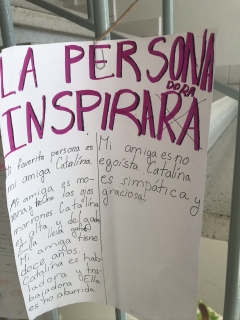 LA PERSONA
DORA
INSPIRARA
Mi favorita persona es
mi amiga Catalína.
Mi amiga es mo-
rena y tiene los ojos
marrones. Catalína
es alta y delgada
Ella
Mi amiga tiene
doce años.
Catalína es hab-
ladora y tra-
bajadora Ella
es no aburrida.
Mi amiga es no
egoísta Catalína
es simpática y
graciosa.